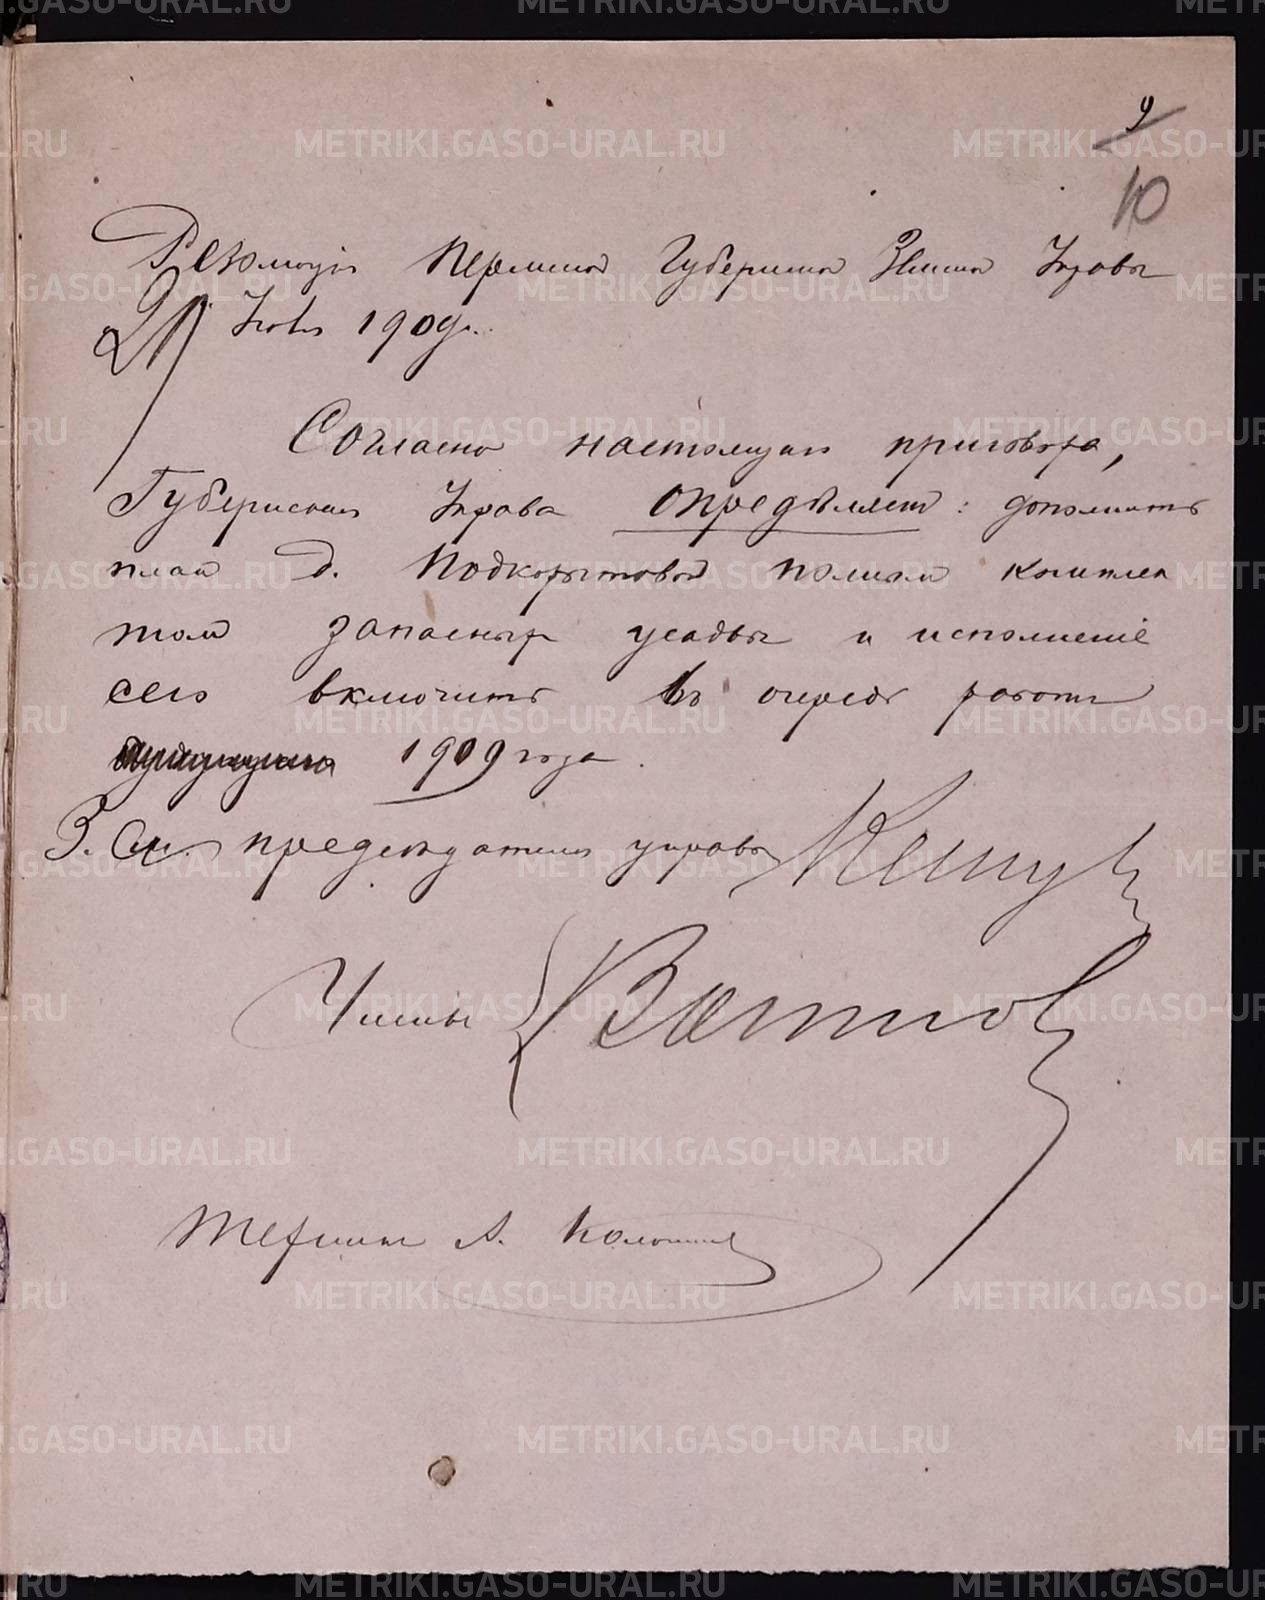 9
10
Резолюція Пермской Губернской Земской Управы
21 1909 г.
Согласно настоящаго приговора,
Губернская Управа опредѣляетъ: дополнить
план д. Подкорытовой полным комплек
том запасных усадьб и исполненіе
сего включить въ очередь работъ
1909 года.
предсѣдателя управы
Члены
А.
METRIKI.GASO-URAL.RU